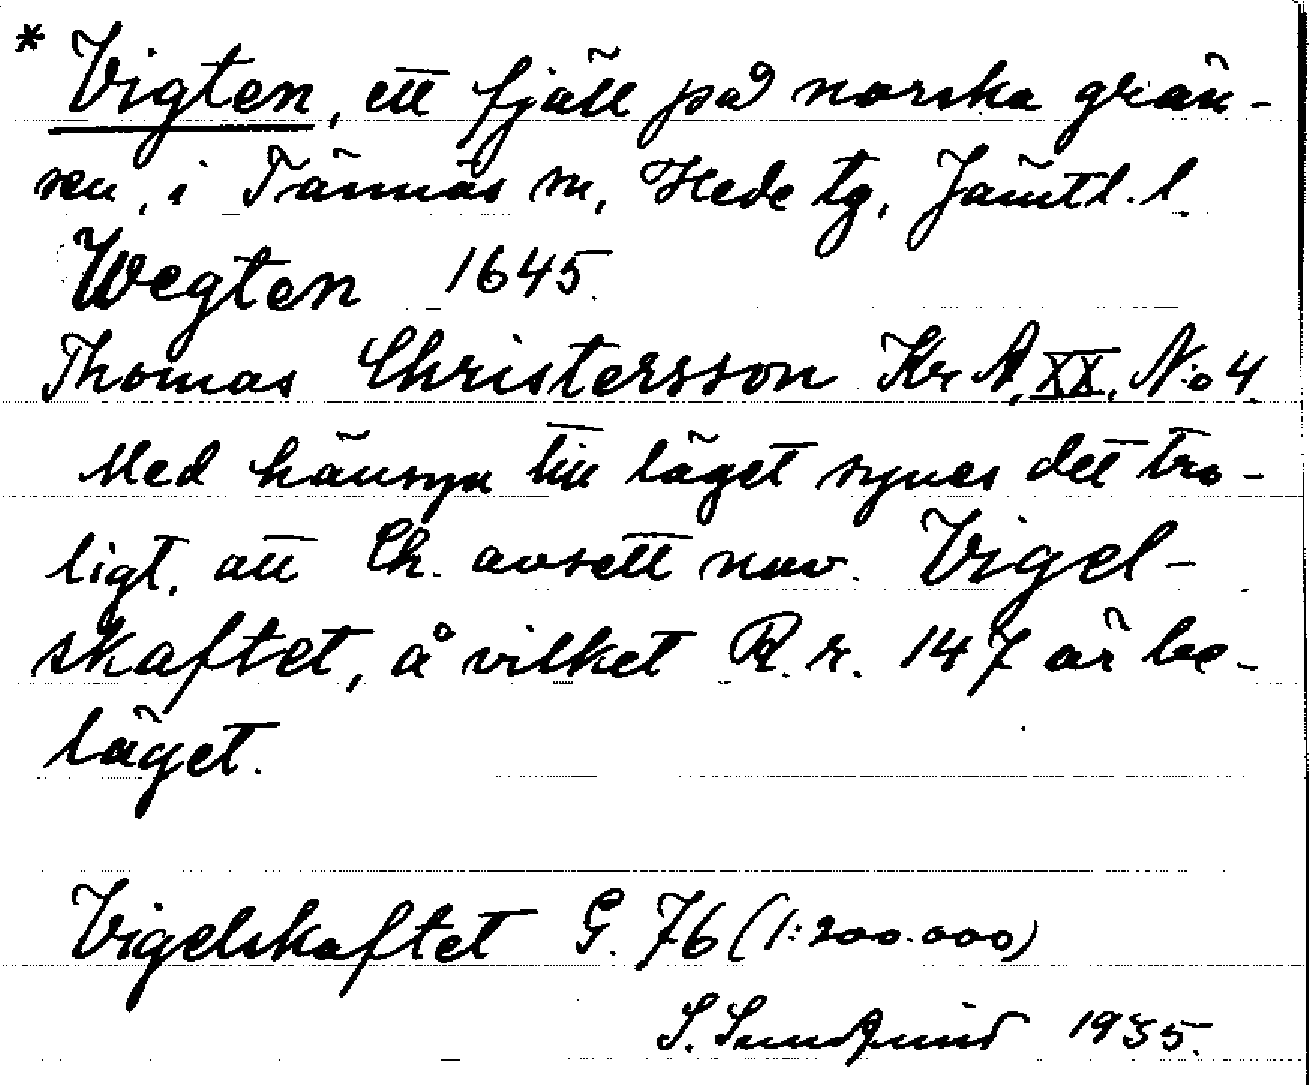 * Vigten, ett fjäll på norska grän-
sen, i Tännäs sn, Hede tg, Jämtl. l.
Wegten 1645.
Thomas Christersson Kr A, XX, No 4.
Med hänsyn till läget synes det tro-
ligt, att Ch. avsett nuv. Vigel-
skaftet, å vilket R. r. 147 är be-
läget.
Vigelskaftet G. 76 (1:200.000)
S. 1935.